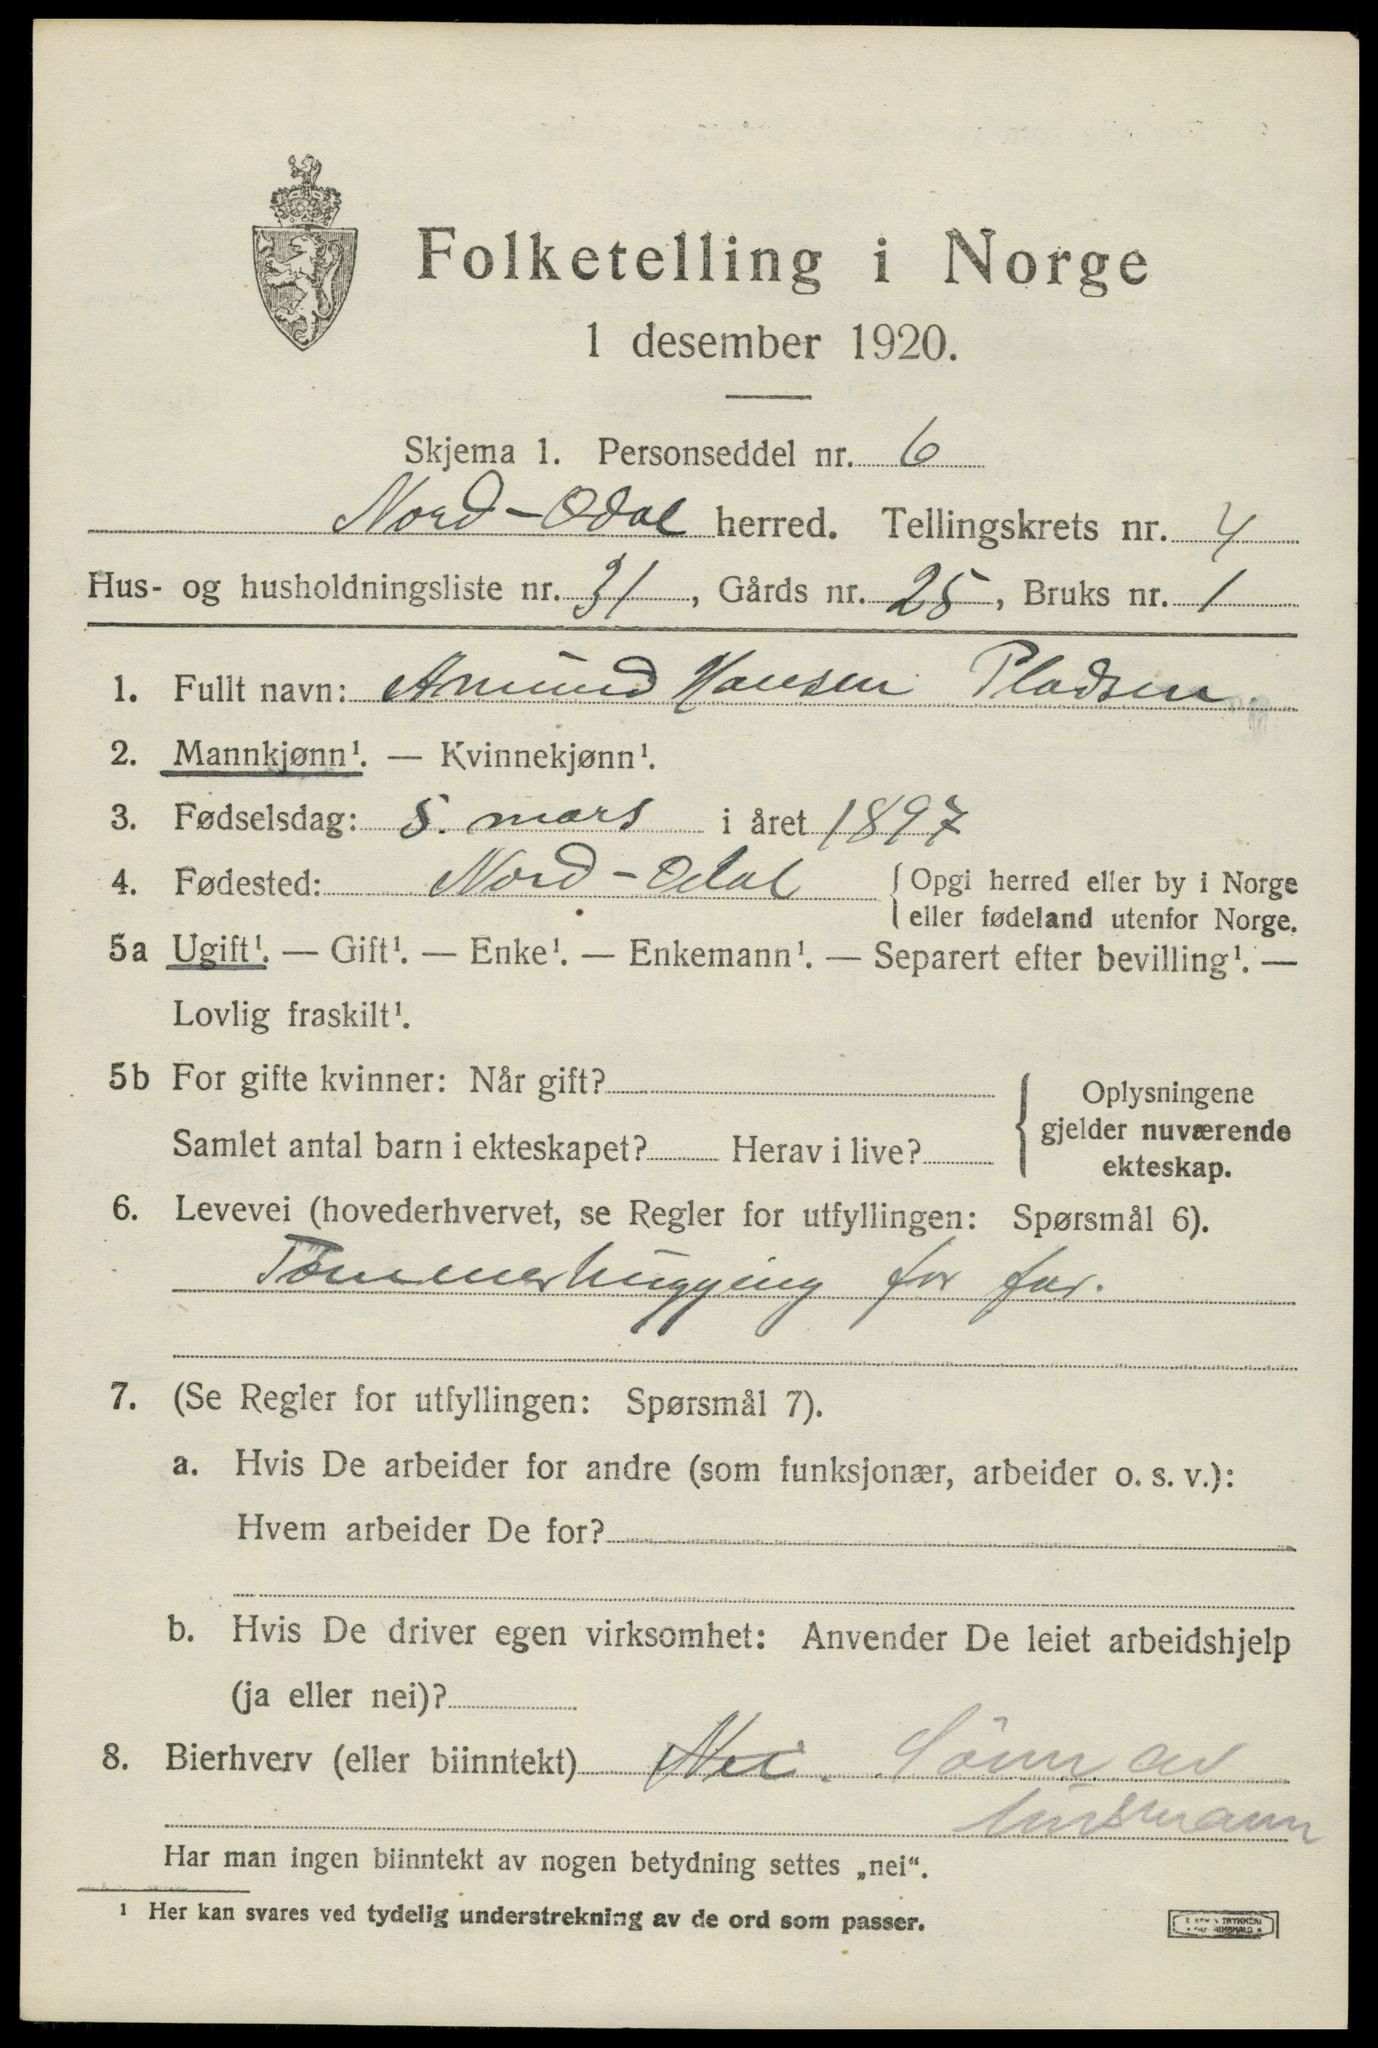 Folketelling i Norge
1 desember 1920.
Skjema 1. Personseddel nr. 6
Nord-Odal herred. Tellingskrets nr. 4
Hus- og husholdningsliste nr. 31, Gårds nr. 25, Bruks nr. 1
1. Fullt navn: Amund Hansen Pladsen
2. Mannkjønn¹. — Kvinnekjønn¹.
3. Fødselsdag: 5. mars i året 1897
4. Fødested: Nord-Odal { Opgi herred eller by i Norge
eller fødeland utenfor Norge.
5a Ugift¹. — Gift¹. — Enke¹. — Enkemann¹. — Separert efter bevilling¹. —
Lovlig fraskilt¹.
5b For gifte kvinner: Når gift?
Samlet antal barn i ekteskapet? Herav i live?
Oplysningene
gjelder nuværende
ekteskap.
6. Levevei (hovederhvervet, se Regler for utfyllingen: Spørsmål 6).
Tømmerhugging for far.
7. (Se Regler for utfyllingen: Spørsmål 7).
a. Hvis De arbeider for andre (som funksjonær, arbeider o. s. v.):
Hvem arbeider De for?
b. Hvis De driver egen virksomhet: Anvender De leiet arbeidshjelp
(ja eller nei)?
8. Bierhverv (eller biinntekt) Nei. Sönn av
husmann
Har man ingen biinntekt av nogen betydning settes „nei“.
¹ Her kan svares ved tydelig understrekning av de ord som passer.